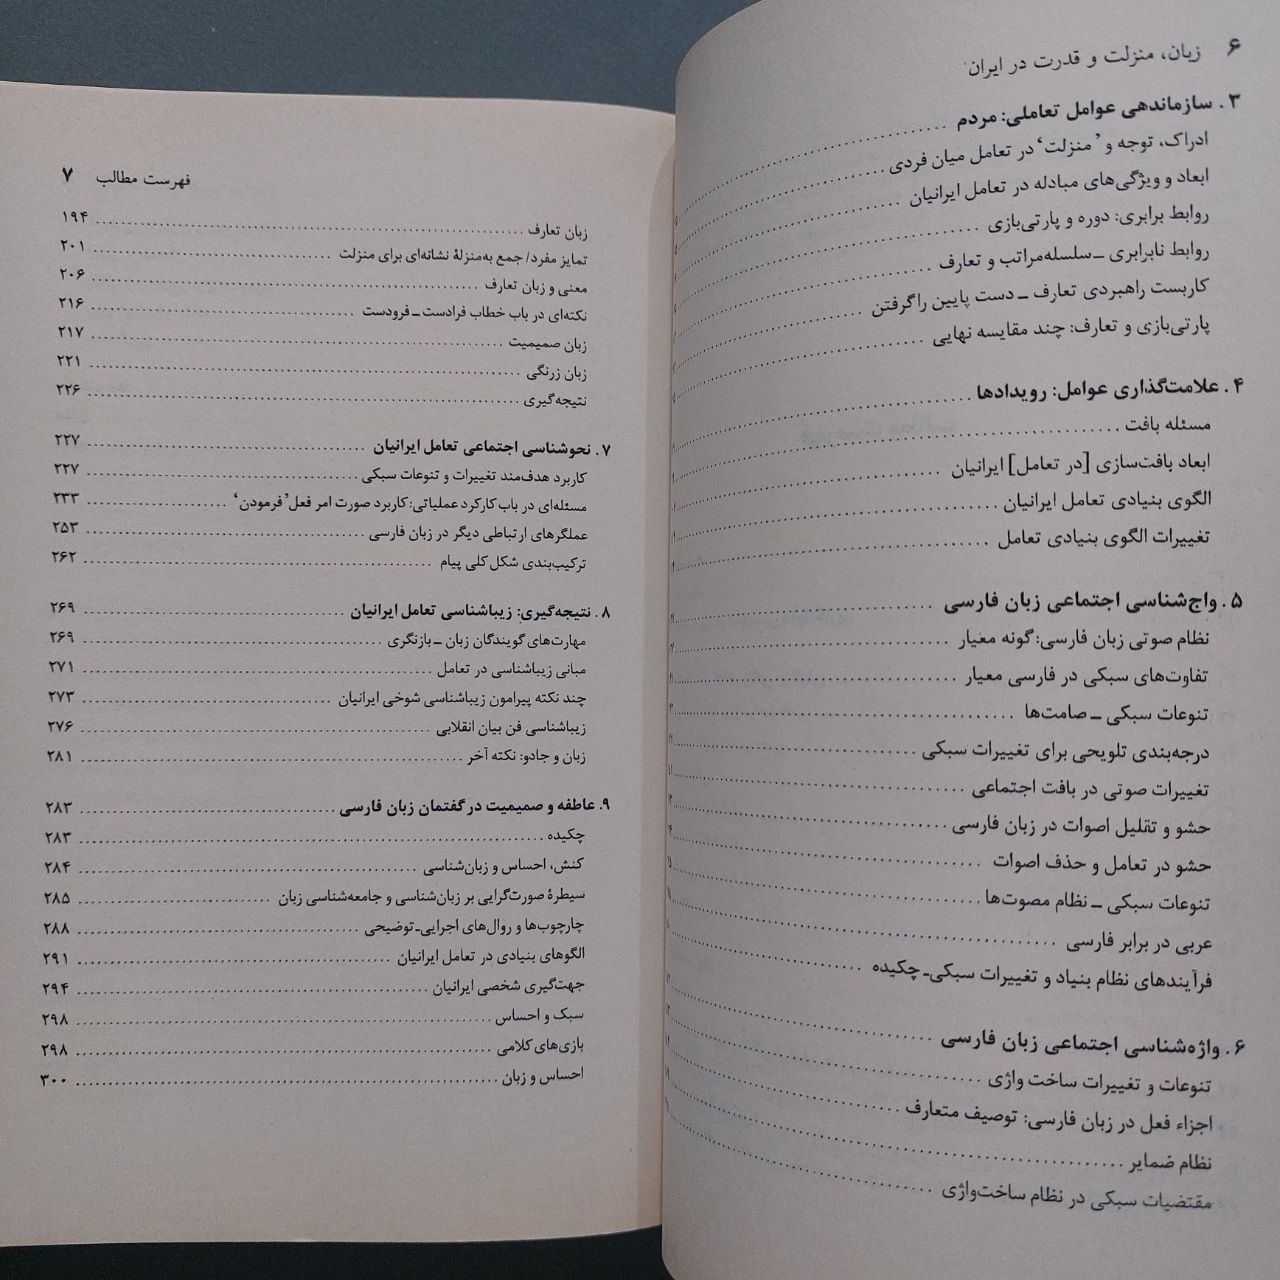 ۶ زبان، منزلت و قدرت در ایران
۳. سازماندهی عوامل تعاملی: مردم
ادراک، توجه و ’منزلت‘ در تعامل میان فردی
ابعاد و ویژگی‌های مبادله در تعامل ایرانیان
روابط برابری: دوره و پارتی‌بازی
روابط نابرابری ـ سلسله‌مراتب و تعارف
کاربست راهبردی تعارف ـ دست پایین را گرفتن
پارتی‌بازی و تعارف: چند مقایسه نهایی
۴. علامت‌گذاری عوامل: رویدادها
مسئله بافت
ابعاد بافت‌سازی [در تعامل] ایرانیان
الگوی بنیادی تعامل ایرانیان
تغییرات الگوی بنیادی تعامل
۵. واج‌شناسی اجتماعی زبان فارسی
نظام صوتی زبان فارسی: گونه معیار
تفاوت‌های سبکی در فارسی معیار
تنوعات سبکی ـ صامت‌ها
درجه‌بندی تلویحی برای تغییرات سبکی
تغییرات صوتی در بافت اجتماعی
حشو و تقلیل اصوات در زبان فارسی
حشو در تعامل و حذف اصوات
تنوعات سبکی ـ نظام مصوت‌ها
عربی در برابر فارسی
فرآیندهای نظام بنیاد و تغییرات سبکی‌ـ چکیده
۶. واژه‌شناسی اجتماعی زبان فارسی
تنوعات و تغییرات ساخت واژی
اجزاء فعل در زبان فارسی: توصیف متعارف
نظام ضمایر
مقتضیات سبکی در نظام ساخت‌واژی
فهرست مطالب ۷
زبان تعارف ۱۹۴
تمایز مفرد/ جمع به‌منزلهٔ نشانه‌ای برای منزلت ۲۰۱
معنی و زبان تعارف ۲۰۶
نکته‌ای در باب خطاب فرادست ـ فرودست ۲۱۶
زبان صمیمیت ۲۱۷
زبان زرنگی ۲۲۱
نتیجه‌گیری ۲۲۶
۷. نحوشناسی اجتماعی تعامل ایرانیان ۲۲۷
کاربرد هدف‌مند تغییرات و تنوعات سبکی ۲۲۷
مسئله‌ای در باب کارکرد عملیاتی: کاربرد صورت امر فعل ’فرمودن‘ ۲۳۳
عملگرهای ارتباطی دیگر در زبان فارسی ۲۵۳
ترکیب‌بندی شکل کلی پیام ۲۶۲
۸. نتیجه‌گیری: زیباشناسی تعامل ایرانیان ۲۶۹
مهارت‌های گویندگان زبان ـ بازنگری ۲۶۹
مبانی زیباشناسی در تعامل ۲۷۱
چند نکته پیرامون زیباشناسی شوخی ایرانیان ۲۷۳
زیباشناسی فن بیان انقلابی ۲۷۶
زبان و جادو: نکته آخر ۲۸۱
۹. عاطفه و صمیمیت در گفتمان زبان فارسی ۲۸۳
چکیده ۲۸۳
کنش، احساس و زبان‌شناسی ۲۸۴
سیطرهٔ صورت‌گرایی بر زبان‌شناسی و جامعه‌شناسی زبان ۲۸۵
چارچوب‌ها و روال‌های اجرایی‌ـ توضیحی ۲۸۸
الگوهای بنیادی در تعامل ایرانیان ۲۹۱
جهت‌گیری شخصی ایرانیان ۲۹۴
سبک و احساس ۲۹۸
بازی‌های کلامی ۲۹۸
احساس و زبان ۳۰۰